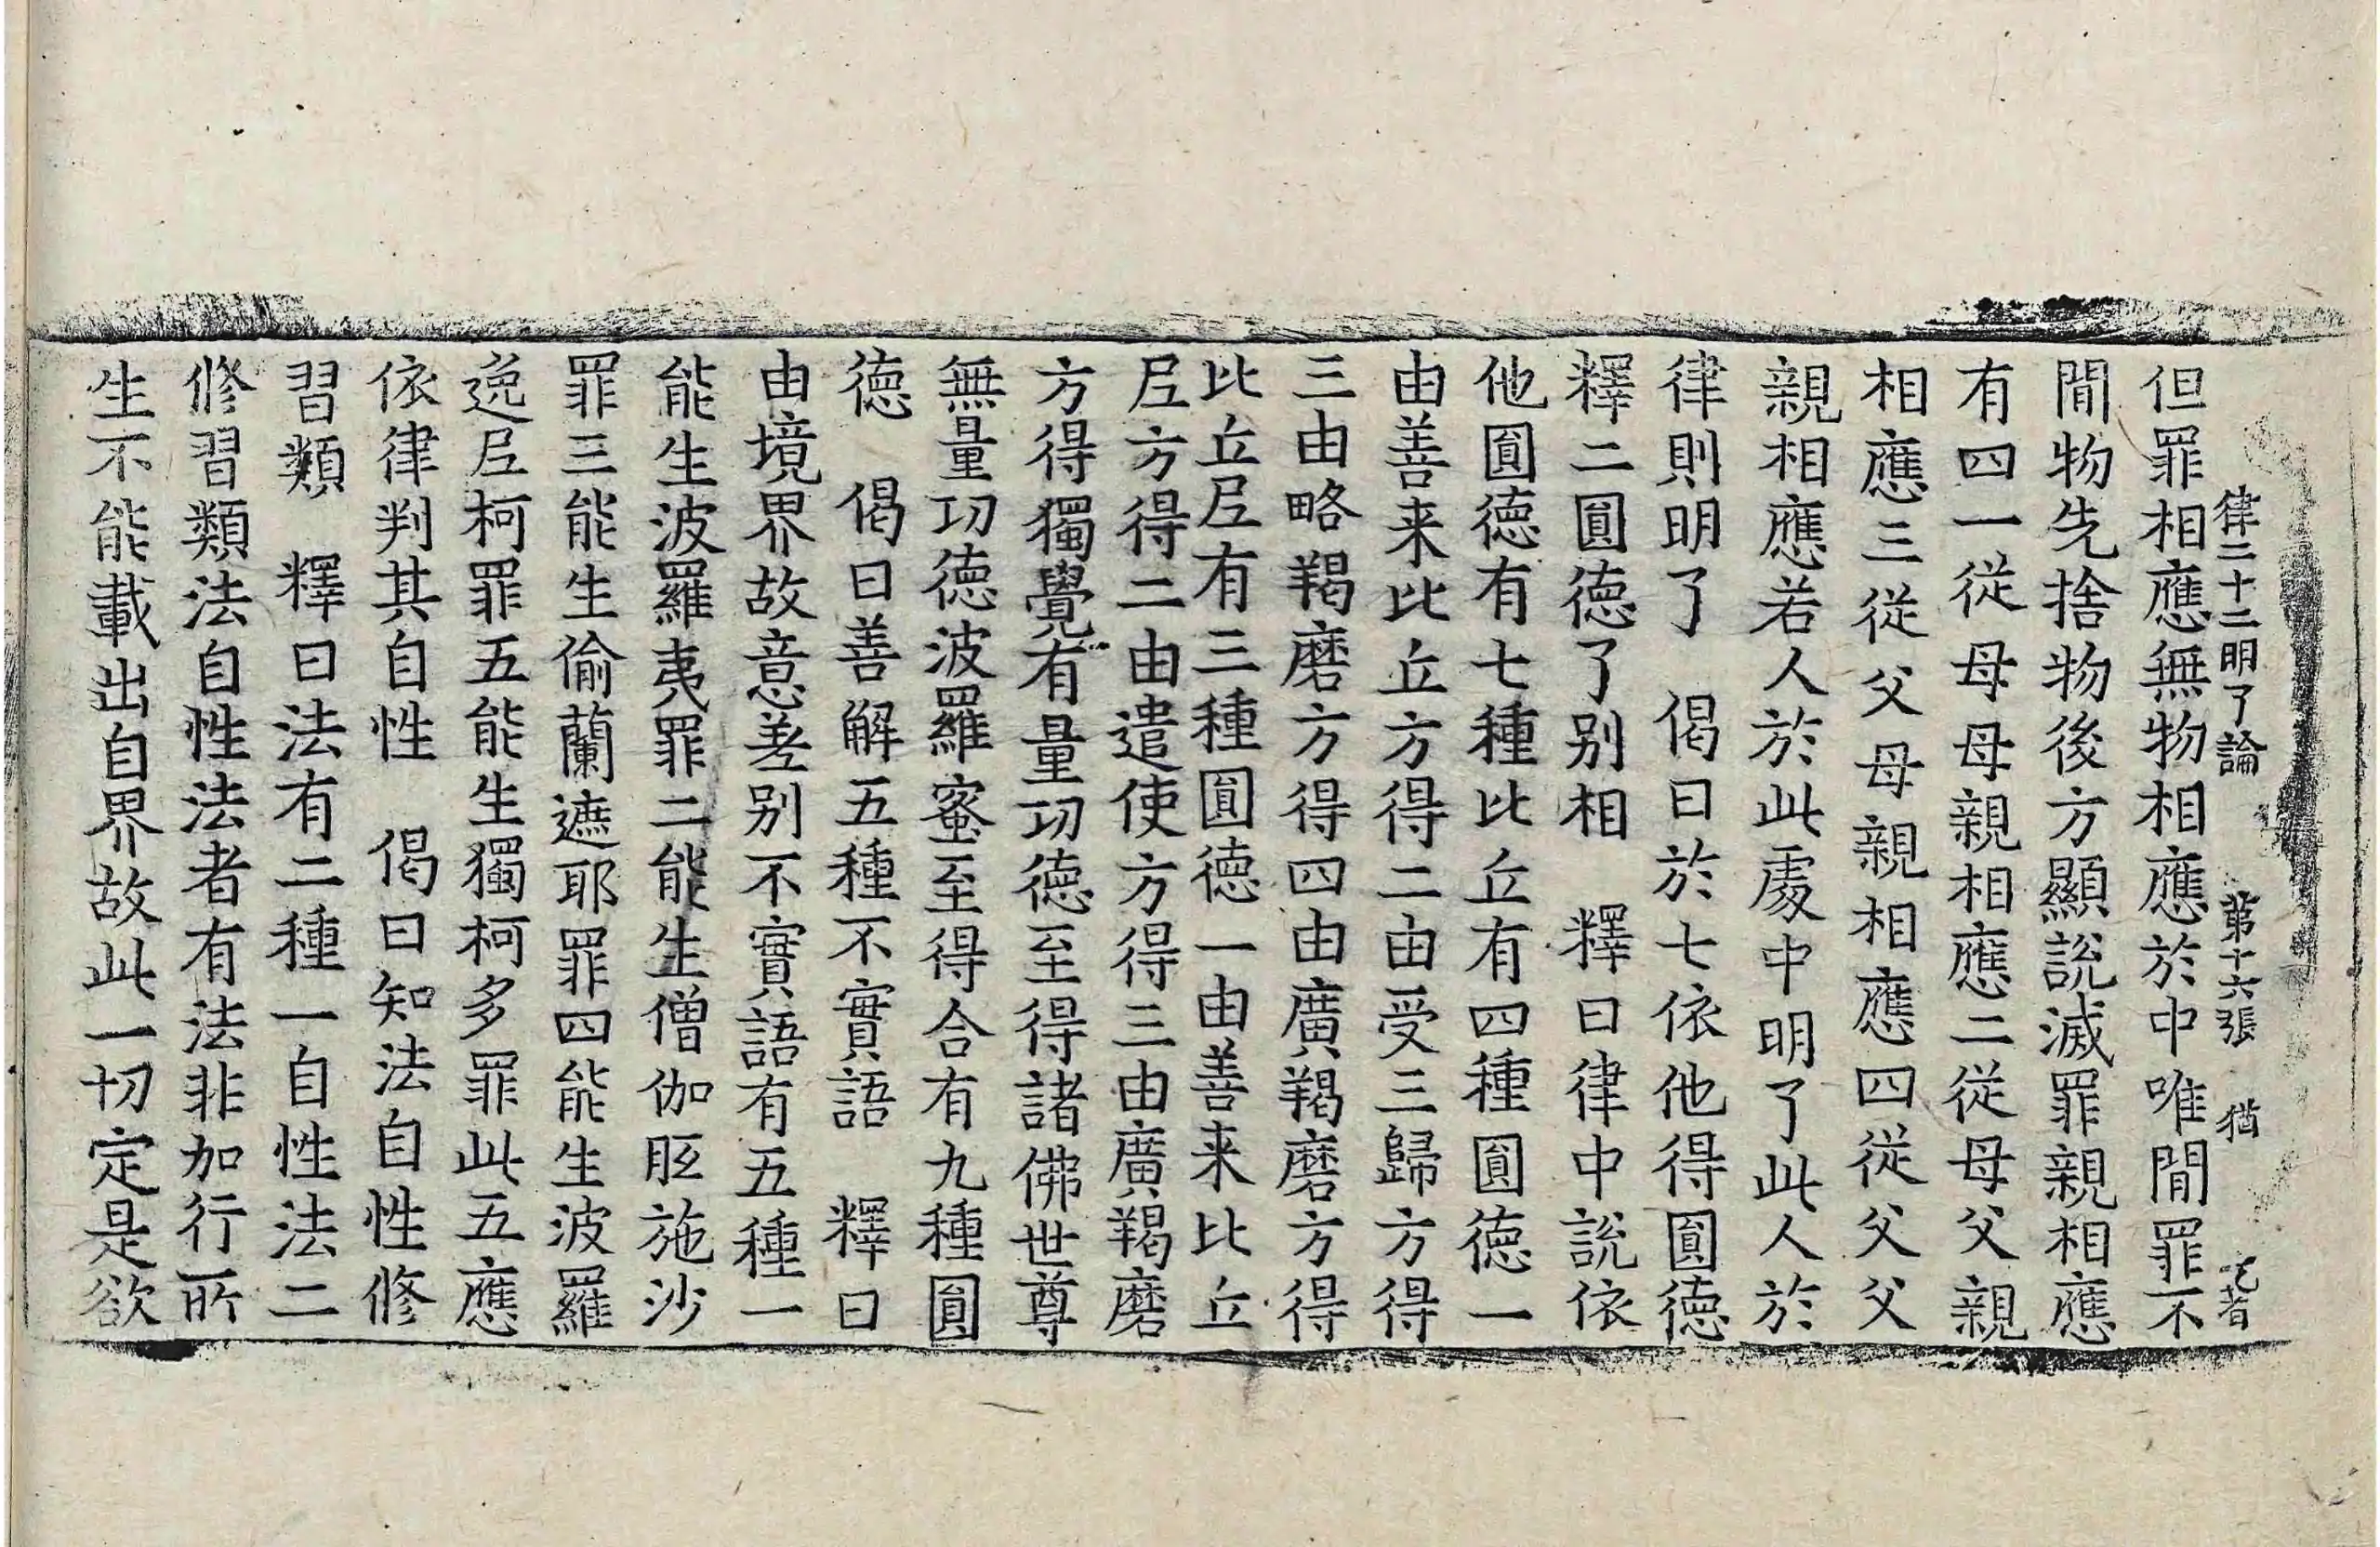 律二十二明了論 第十六張 猶
但罪相應無物相應於中唯間罪不
間物先捨物後方顯說滅罪親相應
有四一從母母親相應二從母父親
相應三從父母親相應四從父父
親相應若人於此處中明了此人於
律則明了 偈曰於七依他得圓德
釋二圓德了別相 釋曰律中說依
他圓德有七種比丘有四種圓德一
由善来比丘方得二由受三歸方得
三由略羯磨方得四由廣羯磨方得
比丘尼有三種圓德一由善来比丘
尼方得二由遣使方得三由廣羯磨
方得獨覺有量功德至得諸佛世尊
無量功德波羅蜜至得合有九種圓
德 偈曰善解五種不實語 釋曰
由境界故意差別不實語有五種一
能生波羅夷罪二能生僧伽胝施沙
罪三能生偷蘭遮耶罪四能生波羅
逸尼柯罪五能生獨柯多罪此五應
依律判其自性 偈曰知法自性修
習類 釋曰法有二種一自性法二
修習類法自性法者有法非加行所
生不能載出自界故此一切定是欲